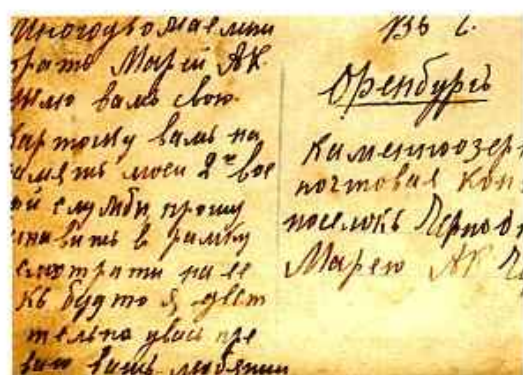 Многоуважаемый
брать Марей АК.
сылю вамъ свою
карточку вамъ на
память моей 2й вое
ой службы, прошу
ставить в рамку
смотрати на ее
къ будто я дест
тельна увась пре
ваю вашъ любящи
изъ С.
Оренбургъ
Каменноозерн
почтовая Кон
поселокъ Черноо
Марею АК